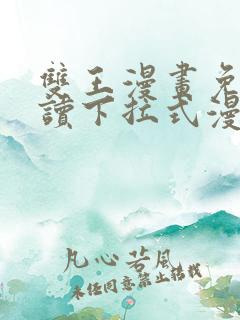 雙王漫畫免
讀下拉式漫
凡心若風
未经同意禁止转载